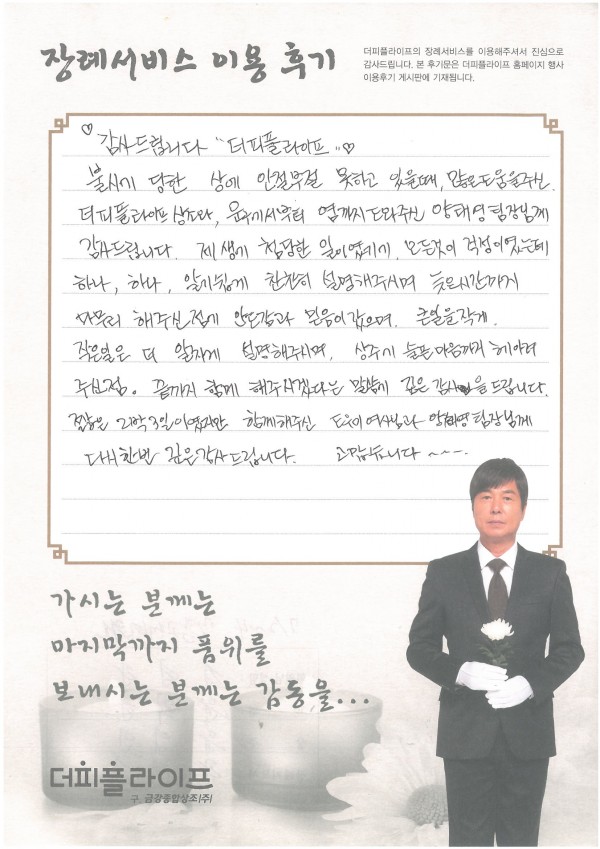 장례서비스 이용 후기
더피플라이프의 장례서비스를 이용해주셔서 진심으로
감사드립니다. 본 후기문은 더피플라이프 홈페이지 행사
이용후기 게시판에 기재됩니다.
♡감사드립니다 "더피플라이프"♡
불시기 당한 상에 안절부절 못하고 있을때, 많은도움을주신
더피플라이프상조와, 처음부터 옆까지도와주신 양태영팀장님께
감사드립니다. 제 생기 첨당한 일이였기기, 모든것이 걱정이였는데
하나, 하나, 알기쉽게 찬찬히 설명해주시며 늦은시간까지
마무리 해주신점기 안도감과 믿음이갔으며. 큰일을작게.
작은일은 더 알차게 설명해주시며, 상주기 슬픈마음까지 헤아려
주신점. 끝까지 함께 해주시겠다는 말씀에 깊은 감사을 드립니다.
짧은 2박3일이였지만 함께해주신 도우미여사님과 양태영팀장님께
다시한번 깊은감사드립니다. 고맙습니다 ~~~.
가시는 분께는
마지막까지 품위를
보내시는 분께는 감동을...
더피플라이프
구. 금강종합상조(주)